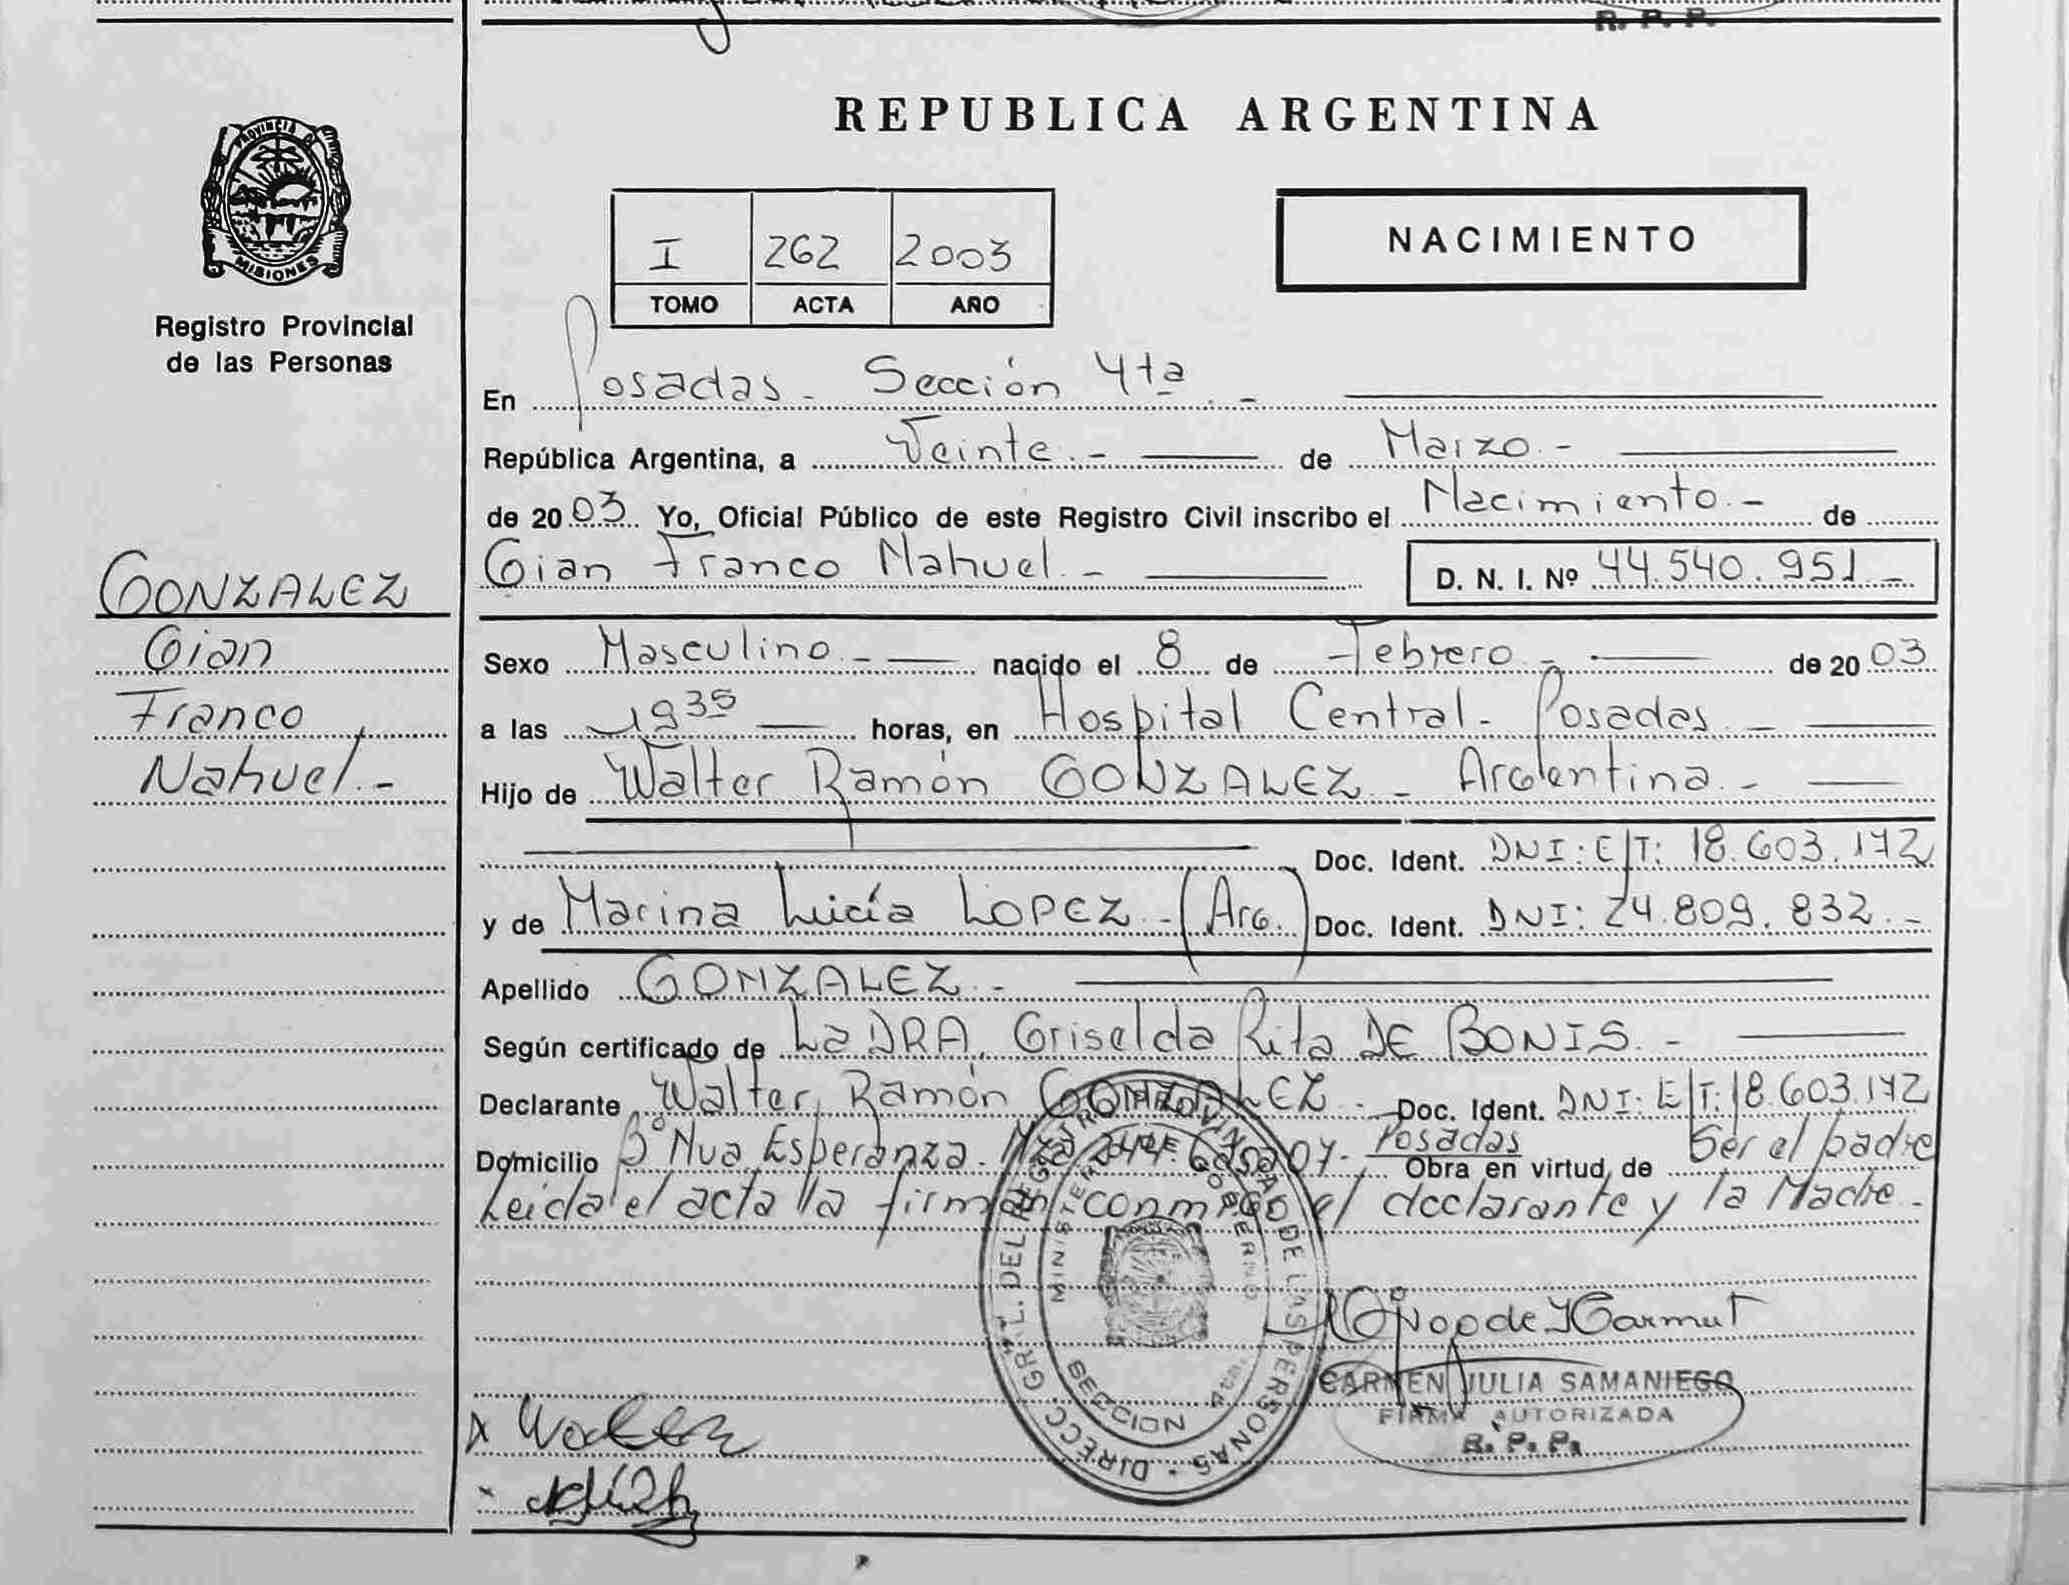 R. P. P.
PROVINCIA D
MISIONES
Registro Provincial
de las Personas
GONZALEZ
Gian
Franco
Nahuel.-
REPUBLICA ARGENTINA
I 262 2003
TOMO ACTA AÑO
NACIMIENTO
En Posadas - Sección 4ta. -
República Argentina, a Veinte.- de Marzo.-
de 2003 Yo, Oficial Público de este Registro Civil inscribo el Nacimiento.- de
Gian Franco Nahuel.- D. N. I. Nº 44.540.951 -
Sexo Masculino.- nacido el 8 de Febrero.- de 2003
a las 19 35 horas, en Hospital Central - Posadas.-
Hijo de Walter Ramón GONZALEZ - Argentina.-
Doc. Ident. DNI: E/T: 18.603.172
y de Marina Lucía LOPEZ.- (Arg.) Doc. Ident. DNI: 24.809.832.-
Apellido GONZALEZ.-
Según certificado de La DRA. Griselda Rita DE BONIS.-
Declarante Walter Ramón GONZALEZ.- Doc. Ident. DNI: E/T: 18.603.172
Domicilio Bº Nva Esperanza. Mza 244 Casa 07- Posadas Obra en virtud de Ser el padre
Leída el acta la firman conmigo el declarante y la Madre.-
DIRECC. GRAL. DEL REGISTRO PROVINCIAL DE LAS PERSONAS
MINISTERIO DE GOBIERNO
SECCION
CARMEN JULIA SAMANIEGO
FIRMA AUTORIZADA
R. P. P.
X Walter